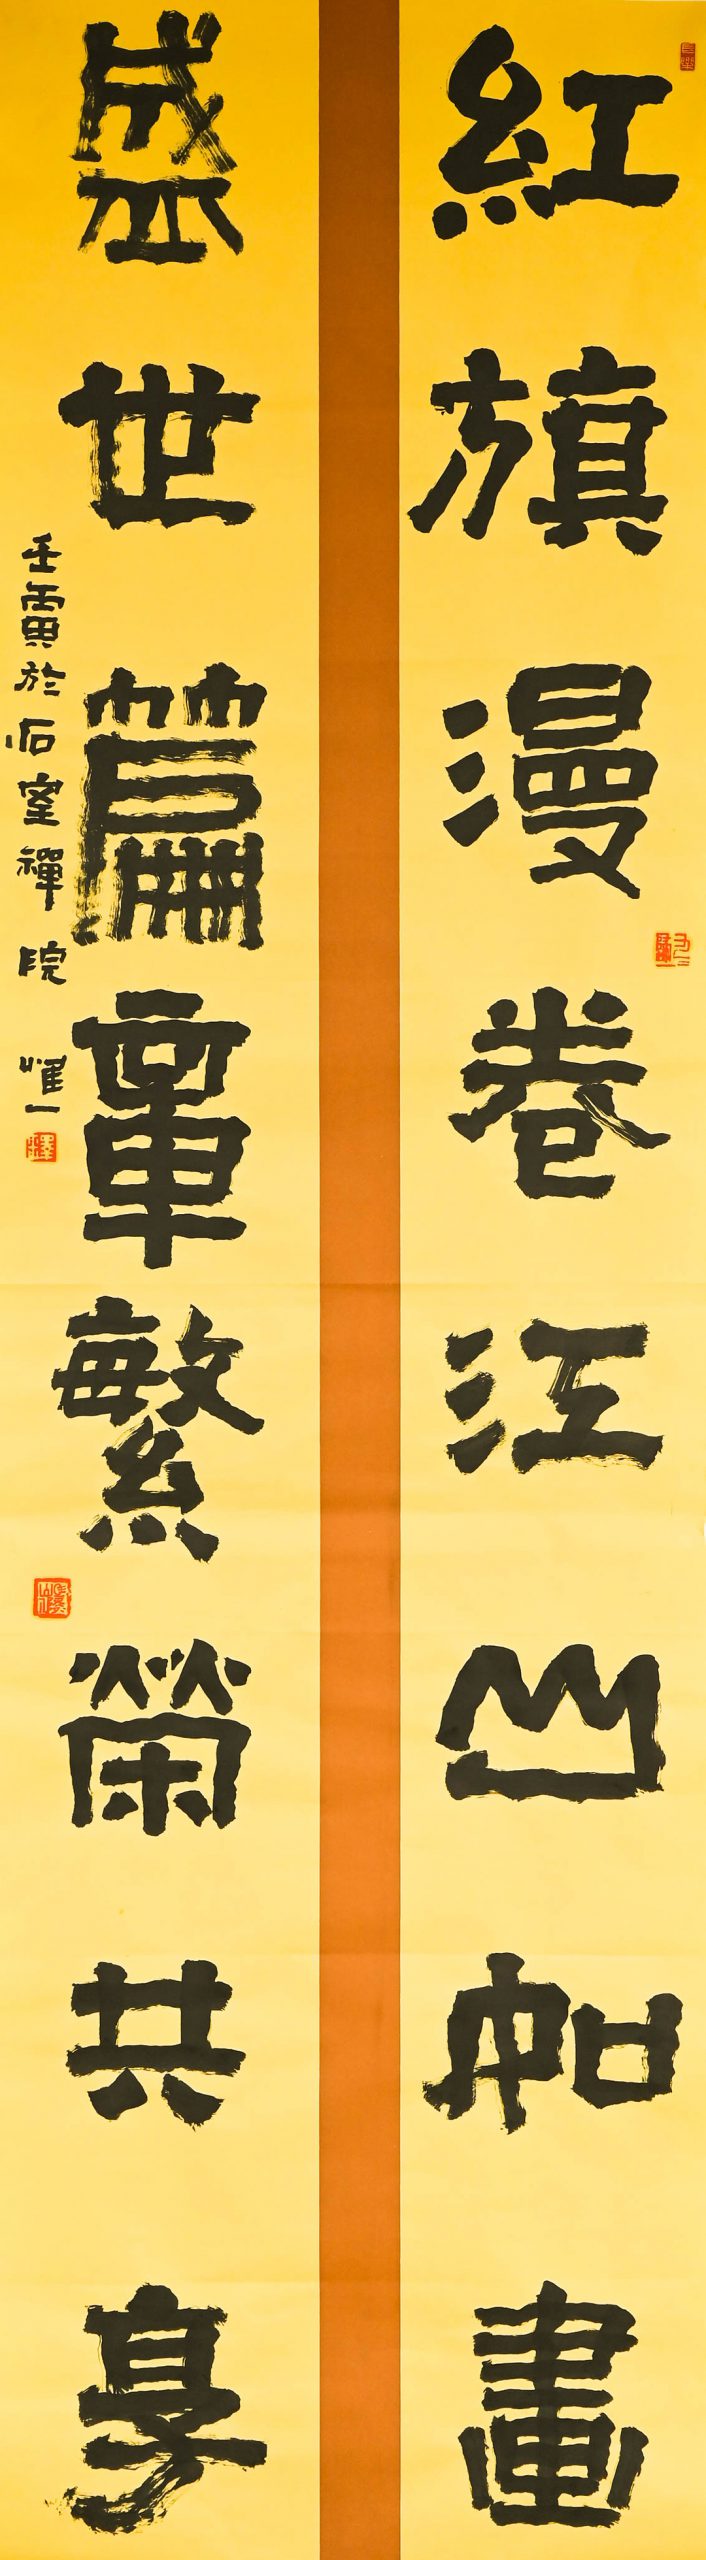 紅旗漫卷江山如畫
盛世篇章繁榮共享
壬寅於石室禪院 唯一